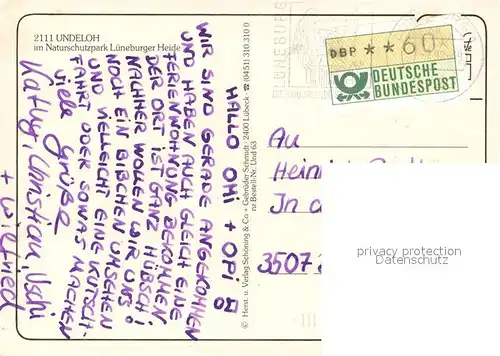 2111 UNDELOH
im Naturschutzpark Lüneburger Heide
HALLO OMI + OPI
WIR SIND GERADE ANGEKOMMEN
UND HABEN AUCH GLEICH EINE
FERIENWOHNUNG BEKOMMEN.
DER ORT IST GANZ HÜBSCH!
NACHHER WOLLEN WIR UNS
NOCH EIN BIßCHEN UMSEHEN
UND VIELLEICHT EINE KUTSCH-
FAHRT ODER SOWAS MACHEN
Viele Grüße
Kathy, Christian, Uschi
+ Wilfried
© Herst. u. Verlag Schöning & Co + Gebrüder Schmidt · 2400 Lübeck · ☎ (0451) 310 310 0
Bestell-Nr. Und 63
LÜNEBURG
DBP * * 60
DEUTSCHE
BUNDESPOST
An
In
3507
privacy protection
Datenschutz